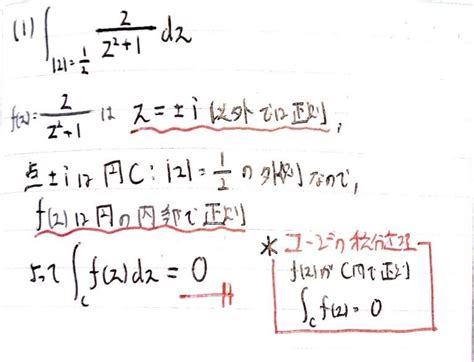 (1) ∫_{|z|=1/2} 2/(z²+1) dz
f(z)=2/(z²+1) は z=±i 以外では正則,
点±iは円C:|z|=1/2の外側なので,
f(z)は円の内部で正則
よって ∫_C f(z)dz = 0
* コーシーの積分定理
f(z)が C内で正則
∫_C f(z)=0